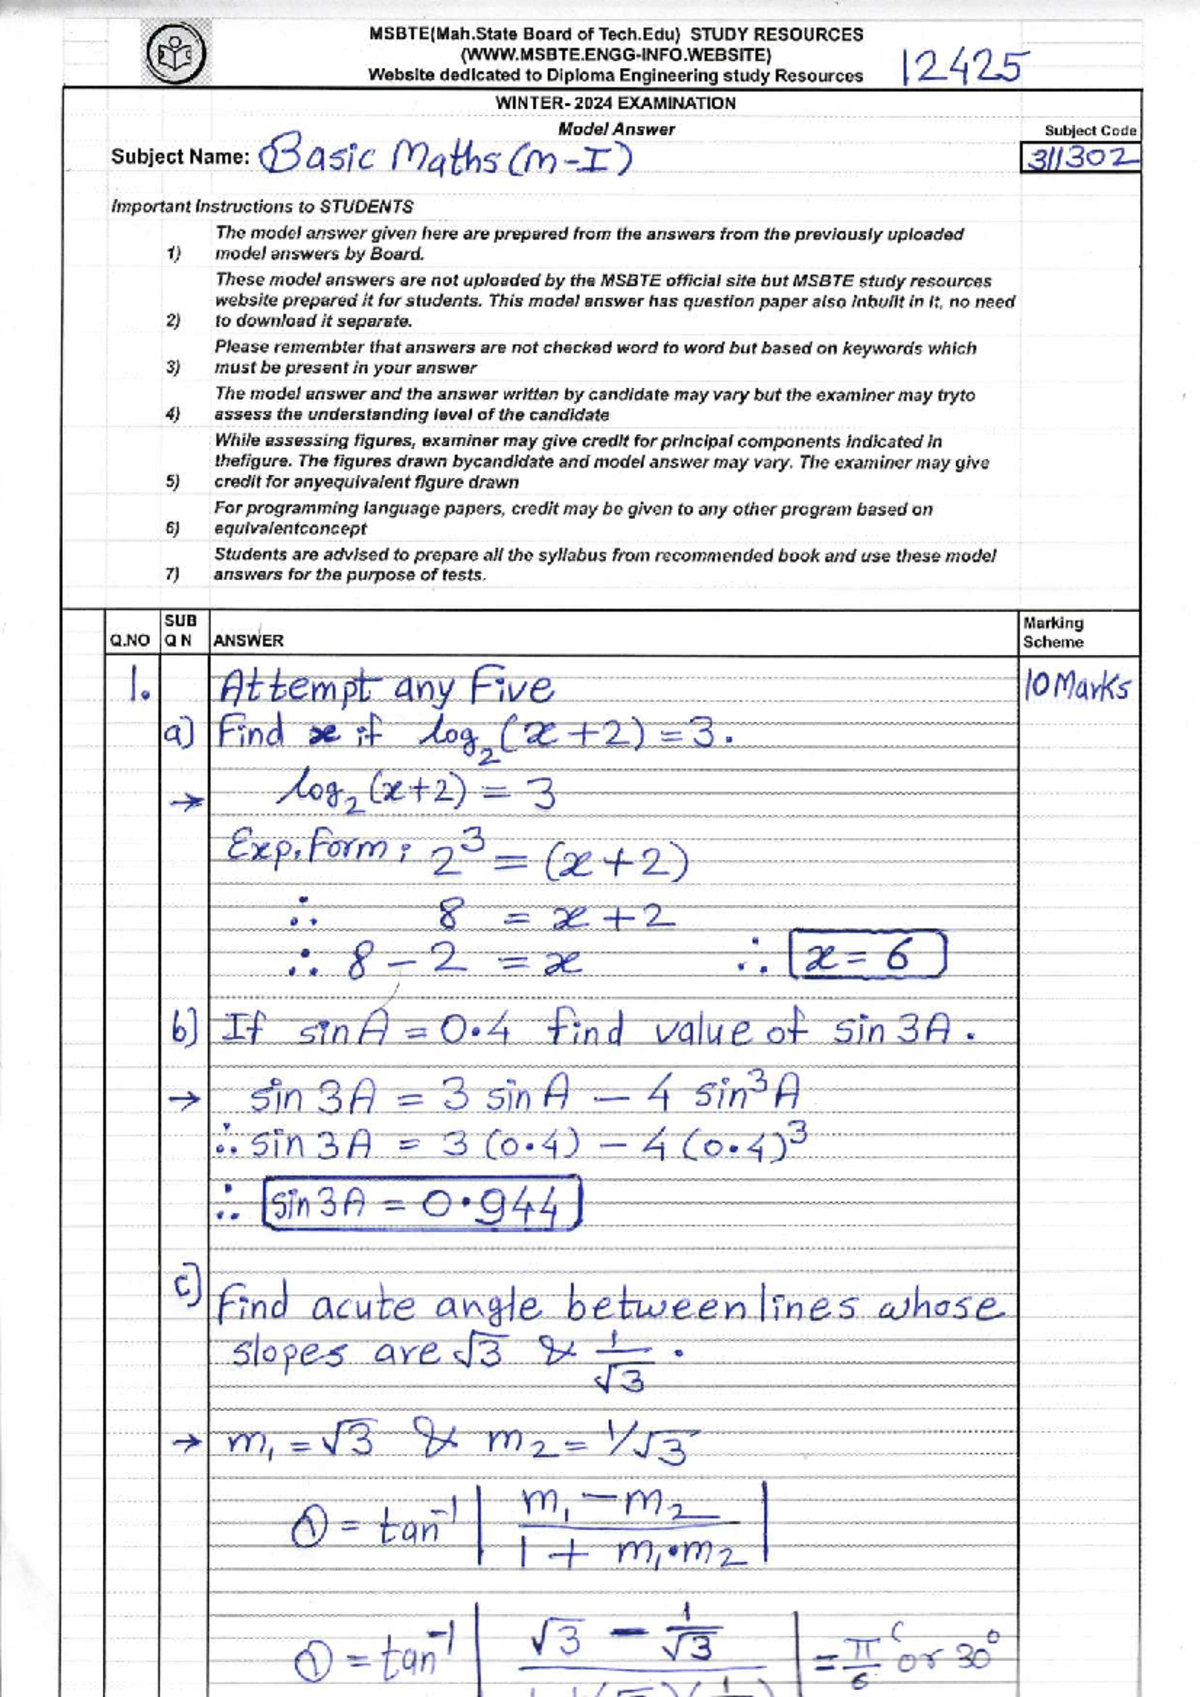 MSBTE(Mah.State Board of Tech.Edu) STUDY RESOURCES
(WWW.MSBTE.ENGG-INFO.WEBSITE)
Website dedicated to Diploma Engineering study Resources
12425
WINTER- 2024 EXAMINATION
Model Answer
Subject Code
Subject Name: Basic Maths (M-I)
311302
Important Instructions to STUDENTS
1) The model answer given here are prepared from the answers from the previously uploaded
model answers by Board.
2) These model answers are not uploaded by the MSBTE official site but MSBTE study resources
website prepared it for students. This model answer has question paper also inbuilt in it, no need
to download it separate.
3) Please remembter that answers are not checked word to word but based on keywords which
must be present in your answer
4) The model answer and the answer written by candidate may vary but the examiner may tryto
assess the understanding level of the candidate
5) While assessing figures, examiner may give credit for principal components indicated in
thefigure. The figures drawn bycandidate and model answer may vary. The examiner may give
credit for anyequivalent figure drawn
6) For programming language papers, credit may be given to any other program based on
equivalentconcept
7) Students are advised to prepare all the syllabus from recommended book and use these model
answers for the purpose of tests.
Q.NO SUB Q N ANSWER Marking Scheme
1. Attempt any Five 10 Marks
a) Find x if log₂(x+2) = 3.
→ log₂(x+2) = 3
Exp. Form : 2³ = (x+2)
∴ 8 = x+2
∴ 8 – 2 = x ∴ x = 6
b) If sin A = 0.4 find value of sin 3A.
→ sin 3A = 3 sin A – 4 sin³A
∴ sin 3A = 3 (0.4) – 4 (0.4)³
∴ sin 3A = 0.944
c) Find acute angle between lines whose
slopes are √3 & 1/√3 .
→ m₁ = √3 & m₂ = 1/√3
θ = tan⁻¹ | m₁ – m₂ / 1 + m₁•m₂ |
θ = tan⁻¹ | √3 – 1/√3 | = π/6 or 30°